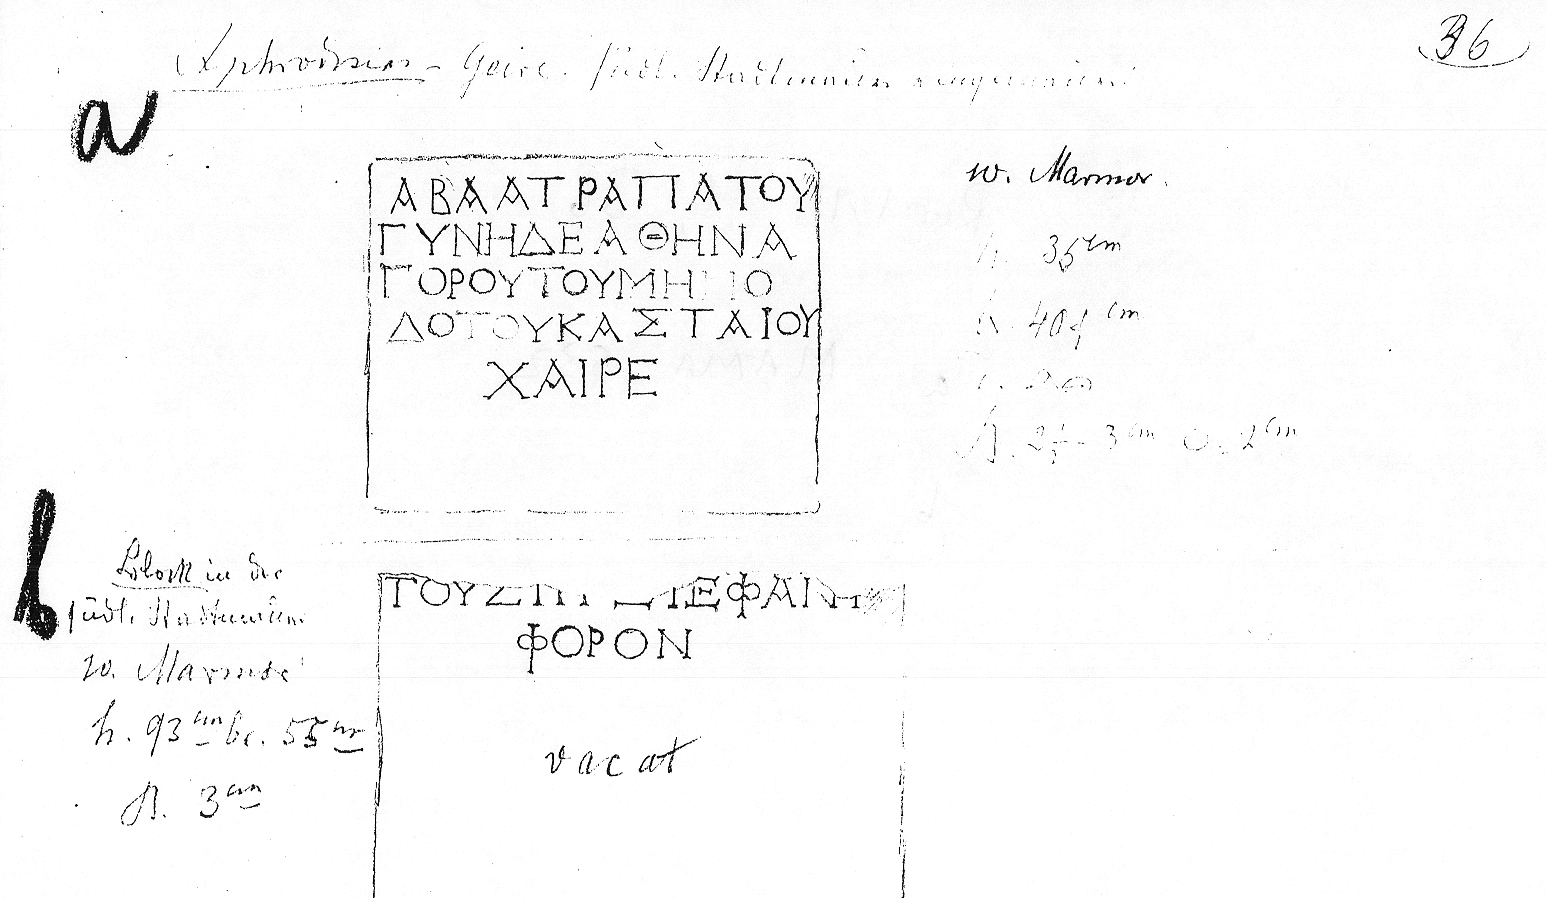 36
Aphrodisias - Geire. südl. Stadtmauer eingemauert
a
ΑΒΑΑΤΡΑΠΑΤΟΥ
ΓΥΝΗΔΕΑΘΗΝΑ
ΓΟΡΟΥΤΟΥΜΗΝΟ
ΔΟΤΟΥΚΑΣΤΑΙΟΥ
ΧΑΙΡΕ
w. Marmor.
h. 35 cm
br. 40
B. 2½ - 3 cm O. 2 cm
b
Block in der
südl. Stadtmauer
w. Marmor
h. 93 cm br. 55 cm
B. 3 cm
ΤΟΥΣ ΕΦΑΝ
ΦΟΡΟΝ
vacat